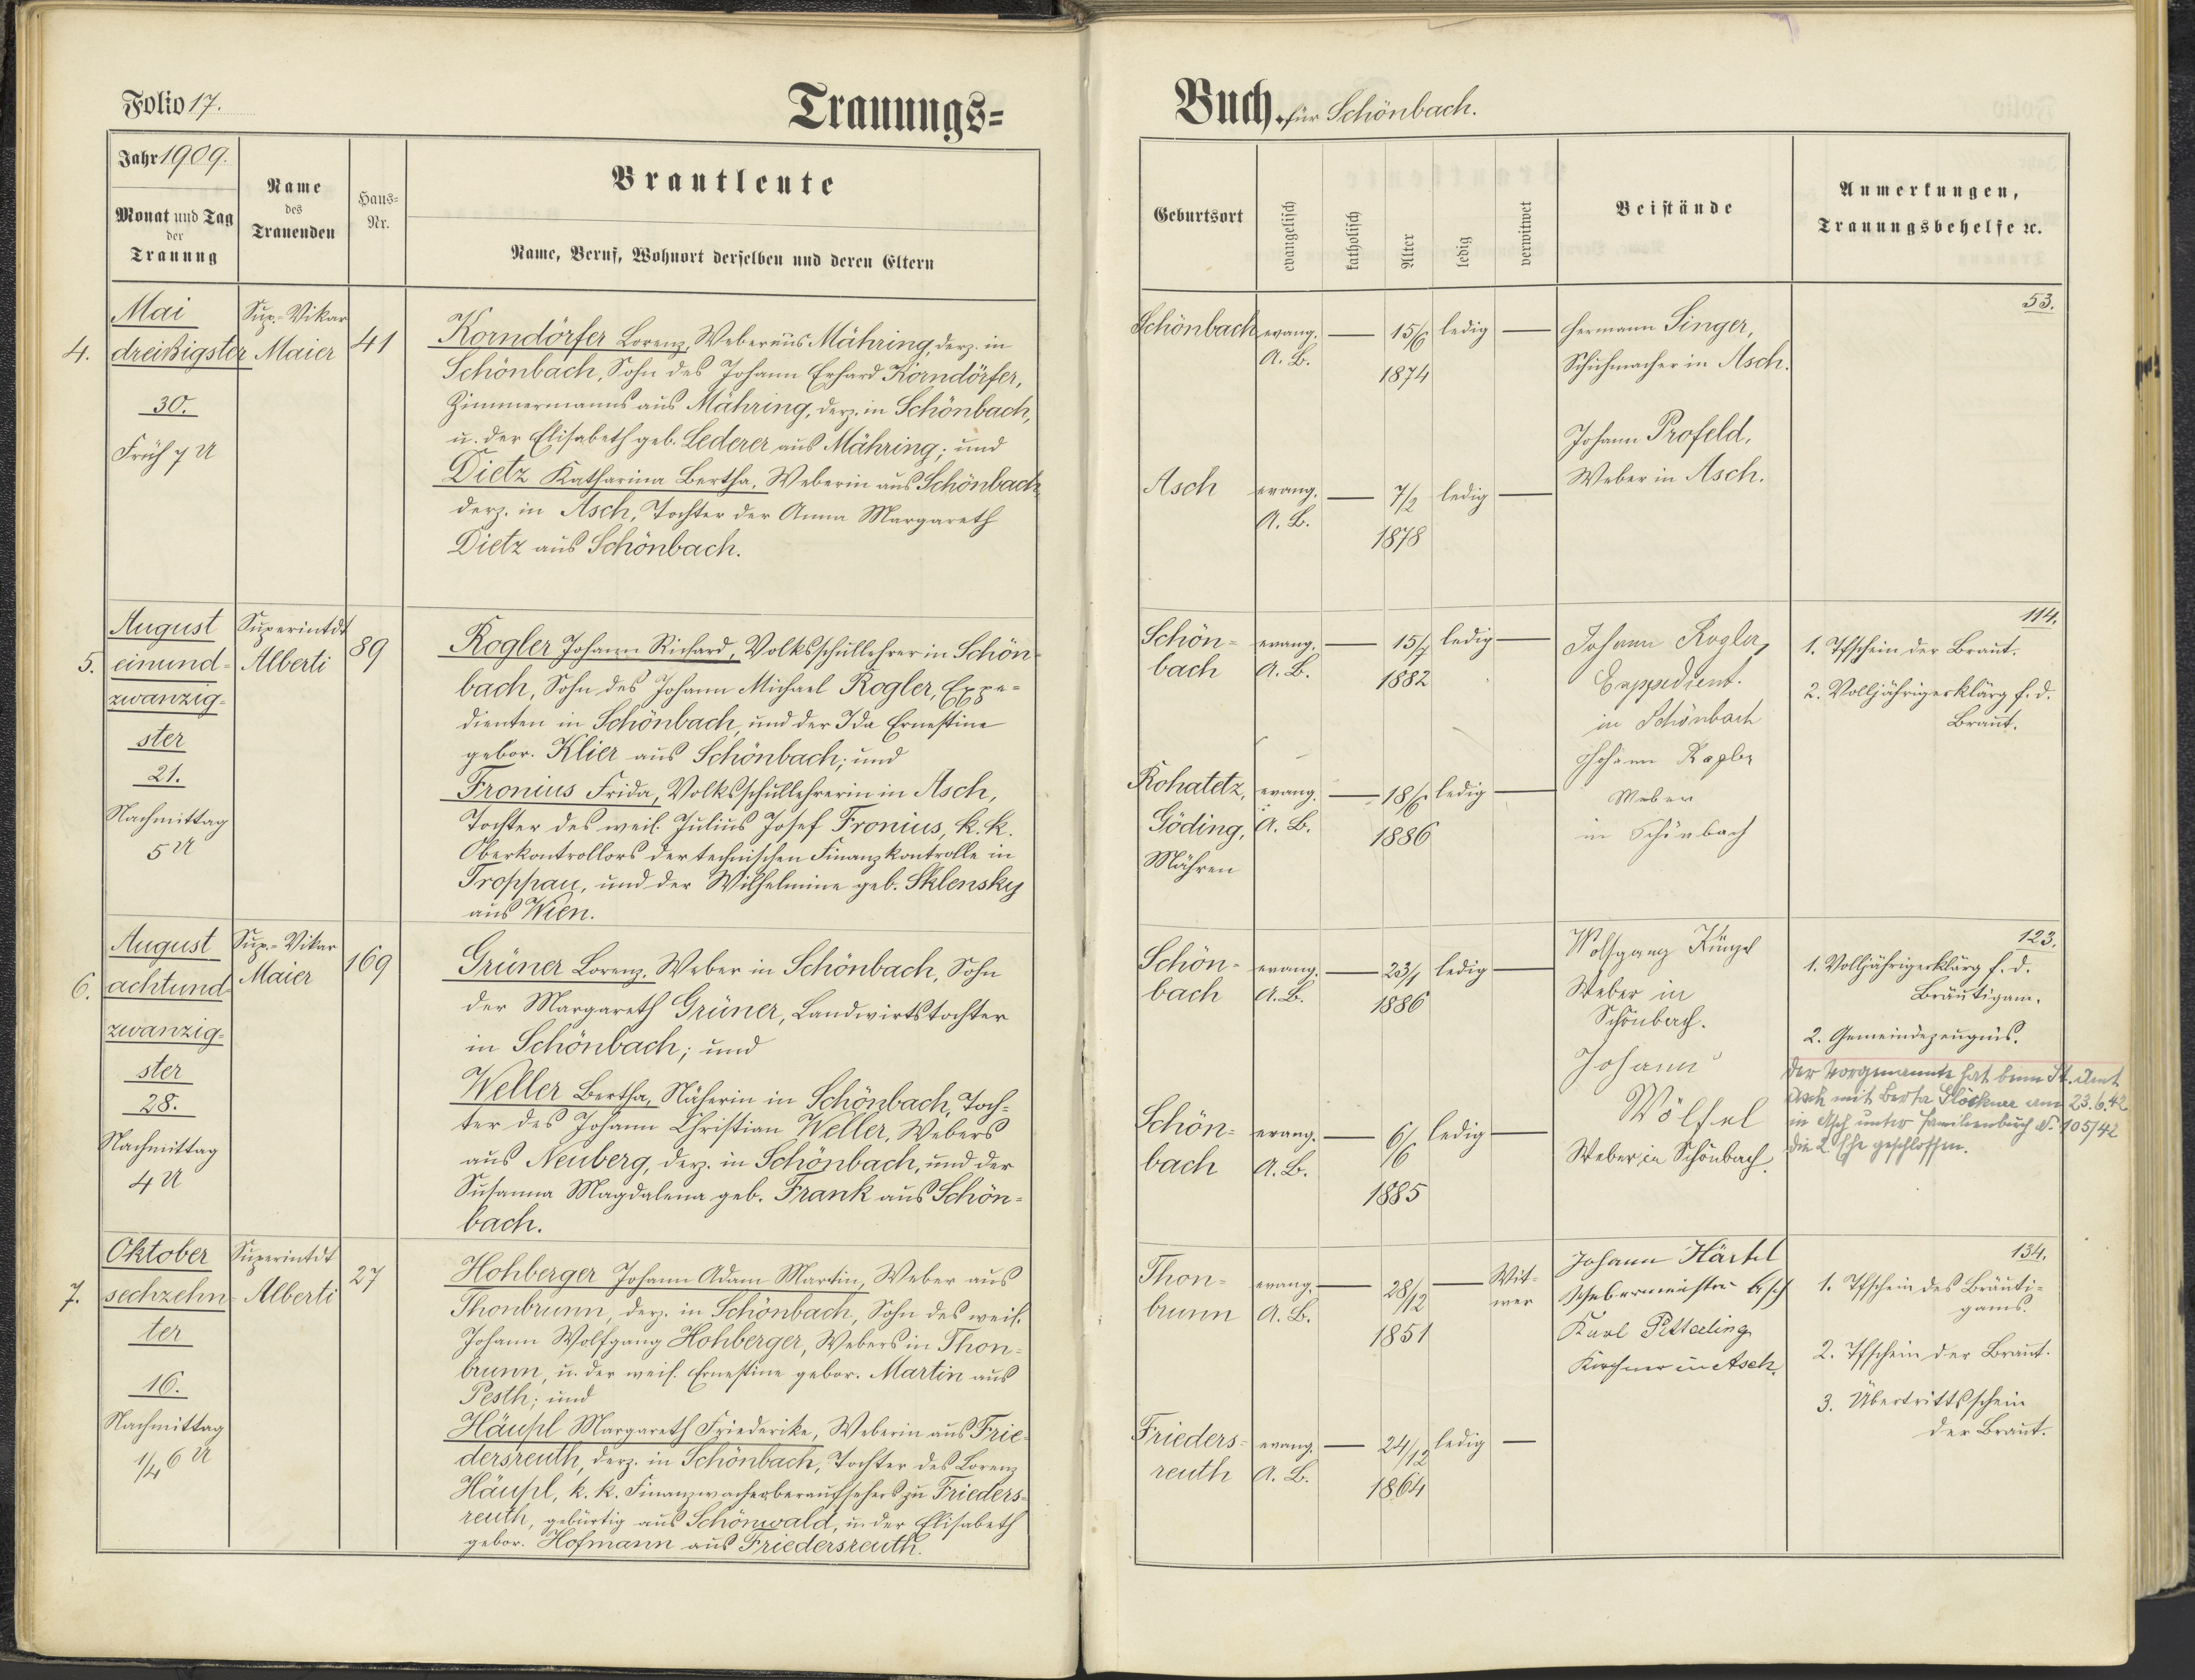 Folio 17.
Trauungs=
Jahr 1909.
Monat und Tag
der
Trauung
Name
des
Trauenden
Haus=
Nr.
Brautleute
Name, Beruf, Wohnort derselben und deren Eltern
4.
Mai
dreißigster
30.
Früh 7 U
Sup.-Vikar
Maier
41
Korndörfer Lorenz, Weber aus Mähring, derz. in
Schönbach, Sohn des Johann Erhard Korndörfer,
Zimmermanns aus Mähring, derz. in Schönbach,
u. der Elisabeth geb. Lederer aus Mähring; und
Dietz Katharina Bertha, Weberin aus Schönbach
derz. in Asch, Tochter der Anna Margareth
Dietz aus Schönbach.
5.
August
einund=
zwanzig=
ster
21.
Nachmittag
5 U
Superintdt
Alberti
89
Rogler Johann Richard, Volksschullehrer in Schön
bach, Sohn des Johann Michael Rogler, Expe=
dienten in Schönbach, und der Ida Ernestine
gebor. Klier aus Schönbach; und
Fronius Frida, Volksschullehrerin in Asch,
Tochter des weil. Julius Josef Fronius, k. k.
Oberkontrollors der technischen Finanzkontrolle in
Troppau, und der Wilhelmine geb. Sklensky
aus Wien.
6.
August
achtund=
zwanzig=
ster
28.
Nachmittag
4 U
Sup.-Vikar
Maier
169
Grüner Lorenz, Weber in Schönbach, Sohn
der Margareth Grüner, Landwirtstochter
in Schönbach; und
Weller Bertha, Näherin in Schönbach, Toch=
ter des Johann Christian Weller, Webers
aus Neuberg, derz. in Schönbach, und der
Susanna Magdalena geb. Frank aus Schön=
bach.
7.
Oktober
sechzehn=
ter
16.
Nachmittag
1/4 6 U
Superintdt
Alberti
27
Hohberger Johann Adam Martin, Weber aus
Thonbrunn, derz. in Schönbach, Sohn des weil.
Johann Wolfgang Hohberger, Webers in Thon=
brunn, u. der weil. Ernestine gebor. Martin aus
Pesth; und
Häupl Margareth Friederike, Weberin aus Frie=
dersreuth, derz. in Schönbach, Tochter des Lorenz
Häupl, k. k. Finanzwacheoberaufsehers zu Frieders=
reuth, gebürtig aus Schönwald, u. der Elisabeth
gebor. Hofmann aus Friedersreuth.
Buch. für Schönbach.
Geburtsort
evangelisch
katholisch
Alter
ledig
verwitwet
Beistände
Anmerkungen,
Trauungsbehelfe ꝛc.
53.
Schönbach evang. — 15/6 ledig —
A. B. 1874
Hermann Singer,
Schuhmacher in Asch.
Johann Profeld,
Weber in Asch.
Asch evang. — 7/2 ledig —
A. B. 1878
114.
Schön=
bach
evang. — 15/7 ledig —
A. B. 1882
Johann Rogler,
Expedient.
in Schönbach
Johann Rogler
Weber
in Schönbach
1. Tfschein der Braut.
2. Volljährigerklärg f. d.
Braut.
Rohatetz,
Göding,
Mähren
evang. — 18/6 ledig —
A. B. 1886
123.
Schön=
bach
evang. — 23/1 ledig —
A. B. 1886
Wolfgang Künzel
Weber in
Schönbach.
Johann
Wölfel
Weber in Schönbach.
1. Volljährigerklärg f. d.
Bräutigam.
2. Gemeindezeugnis.
Der Vorgenannte hat beim St. Amt
Asch mit Berta Glöckner am 23.6.42
in Asch unter Familienbuch Nr. 105/42
die 2. Ehe geschlossen.
Schön=
bach
evang. — 6/6 ledig —
A. B. 1885
134.
Thon=
brunn
evang. — 28/12 — Wit=
wer
A. B. 1851
Johann Härtel
Webermeister Asch
Karl
Kirchner in Asch.
1. Tfschein des Bräuti=
gams.
2. Tfschein der Braut.
3. Übertrittsschein
der Braut.
Frieders=
reuth
evang. — 24/12 ledig —
A. B. 1864